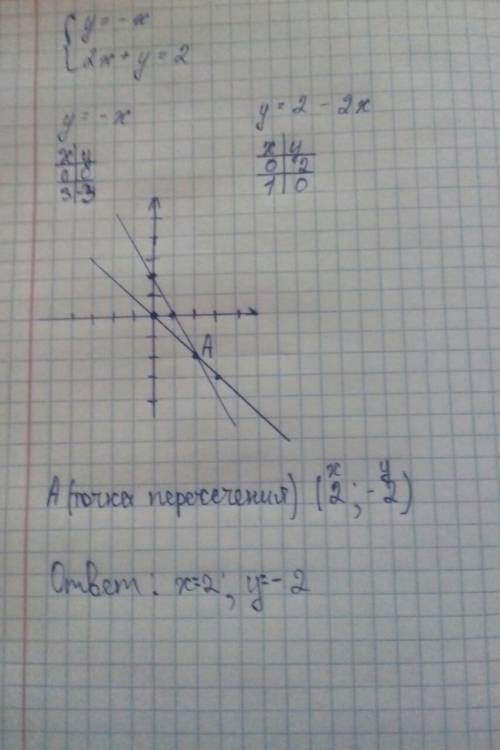 { y = -x
2x + y = 2
y = -x
x | y
0 | 0
3 | -3
y = 2 - 2x
x | y
0 | 2
1 | 0
A
x y
A (точка пересечения) (2; -2)
Ответ: x=2; y=-2